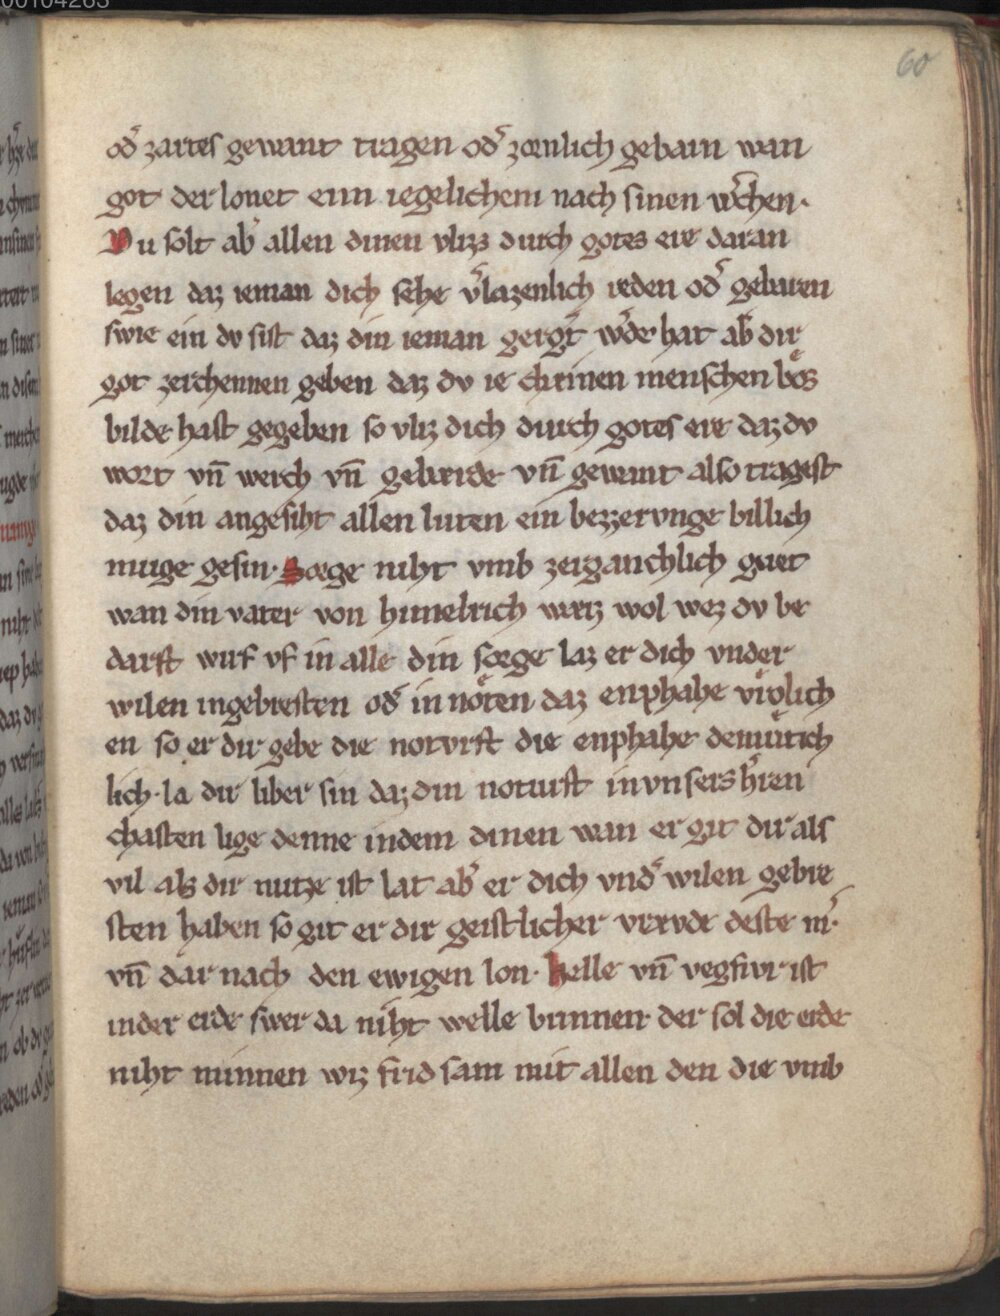 60
od᷎ zartes gewant tragen od᷎ zornlich gebarn wan
got der lonet eim iegelichem nach sinen w᷎chen.
Du solt ab᷎ allen dinen vlizs durch gotes ere daran
legen daz ieman dich sehe v᷎lazenlich reden od᷎ gebaren
swie ein dv sist daz din ieman w᷎de hat ab᷎ dir
got zerchennen geben daz dv ie cheinen menschen bos
bilde hast gegeben so vliz dich durch gotes ere daz dv
wort vn̄ werch vn̄ gebærde vn̄ gewant also tragest
daz din angesiht allen luten ein bezzervnge billich
muge gesin. Sorge niht vmb zerganchlich guet
wan din vater von himelrich waiz wol wez dv be
darft wirf vf in alle din sorge laz er dich vnder
wilen ingebresten od᷎ in nöten daz enphahe vrolich
en so er dir gebe die notvrft die enphahe demutich
lich. la dir liber sin daz din noturft in vnsers h᷎ren
chasten lige denne indem dinen wan er git dir als
vil als dir nutze ist lat ab᷎ er dich vnd᷎ wilen gebre
sten haben so git er dir geistlicher vrævde deste m᷎.
vn̄ dar nach den ewigen lon. helle vn̄ vegfivr ist
inder erde swer da niht welle brinnen der sol die erde
niht minnen wiz frid sam mit allen den die vmb